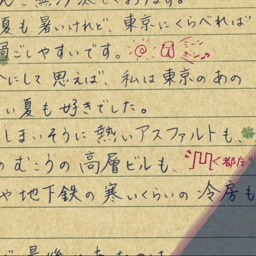 夏も暑いけれど、東京にくらべれば
過ごしやすいです。
にして思えば、私は東京のあの
い夏も好きでした。
しまいそうに熱いアスファルトも、
のむこうの高層ビルも、
や地下鉄の寒いくらいの冷房も